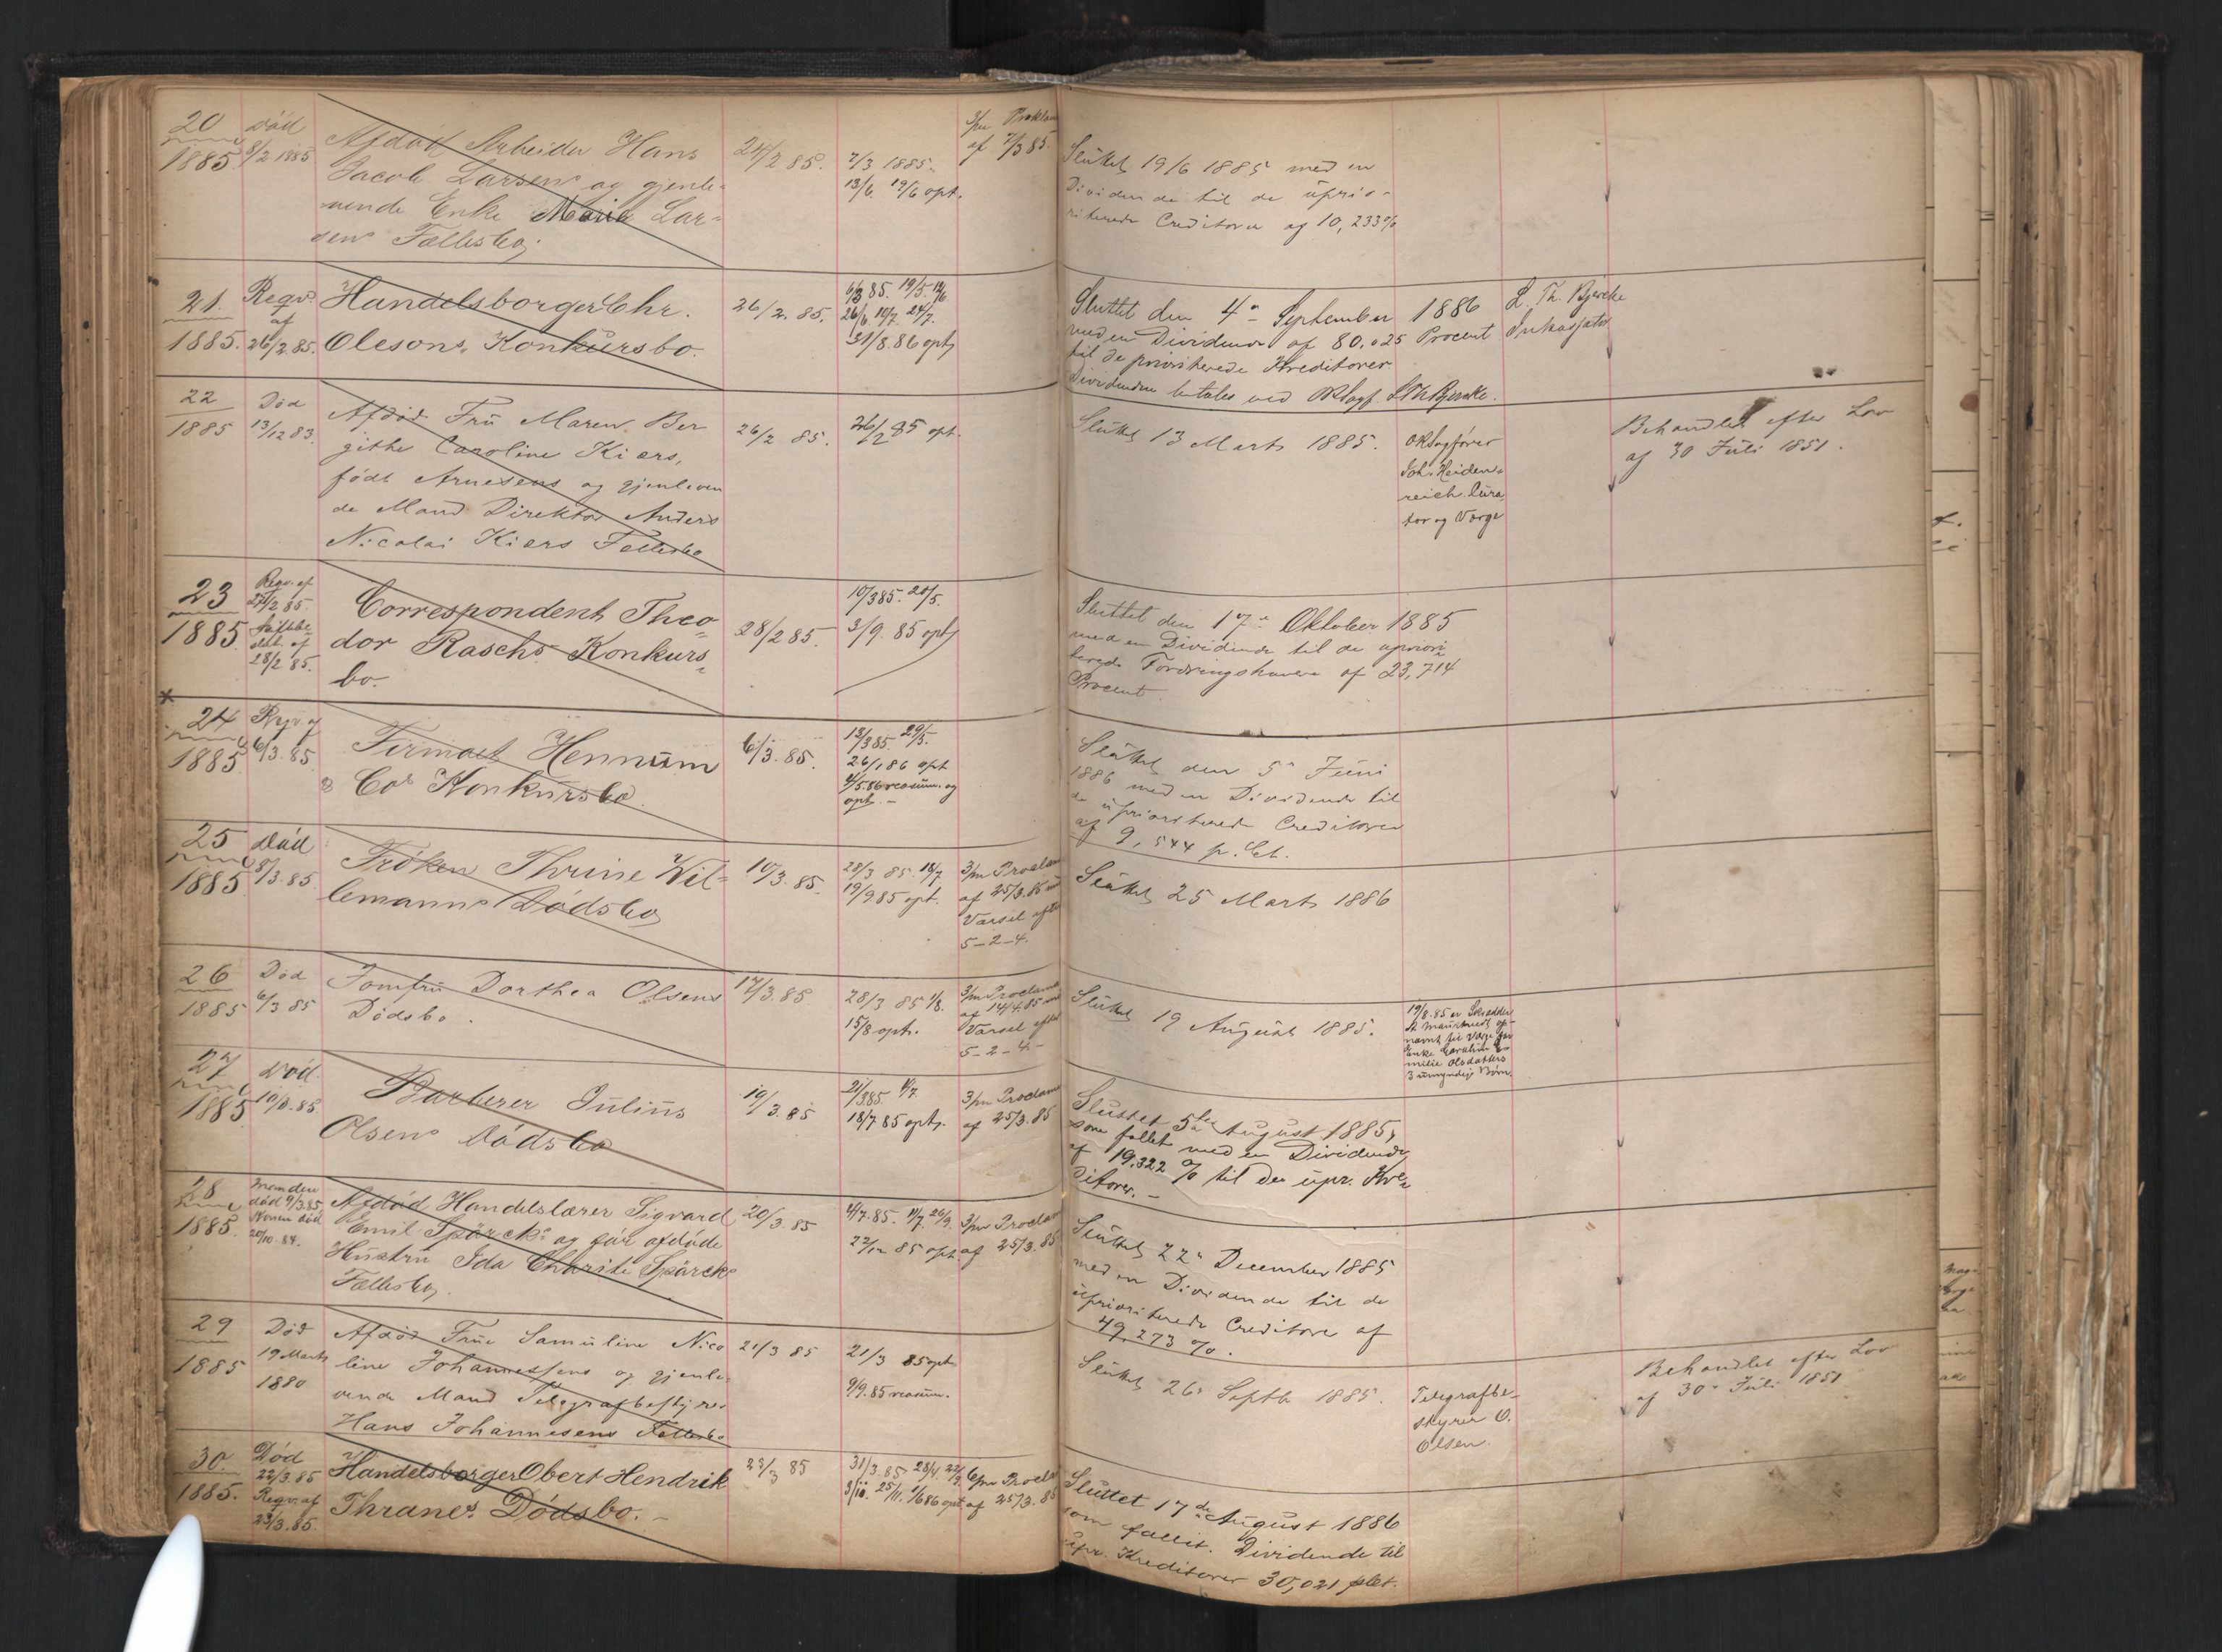 20
1885
Død
8/2 1885
Afdød Arbeider Hans
Jacob Larsens og gjenle-
vende Enke Marie Lar-
sens Fællesbo.
24/2 85.
7/3 1885.
13/6. 19/6 opt.
3/m Proklam
af 7/3 85.
Sluttet 19/6 1885 med en
Dividende til de uprio-
riterede Creditorer af 10,233%
21.
1885.
Reqv.
af
26/2.85.
Handelsborger Chr.
Olesons Konkursbo.
26/2.85.
6/3 85. 19/5.
26/6. 24/7.
31/8.86 opt.
Sluttet den 4de September 1886
med en Dividende af 80,025 Procent
til de prioriterede Kreditorer
Dividenden betales ved ORsagf. L Th Bjercke.
L. Th. Bjercke
Inkassator
22
1885
Død
13/12 83.
Afdød Fru Maren Ber
githe Caroline Kiærs,
født Arnesens og gjenleven
de Mand Direktør Anders
Nicolai Kiærs Fællesbo
26/2 85.
26/2 85 opt.
Sluttet 13 Marts 1885.
ORsagfører
Joh. Heiden-
reich Cura-
tor og Værge
Behandlet efter Lov
af 30 Juli 1851.
23
1885
Reqv. af
27/2 85.
Skiftebe-
slut. af
28/2 85.
Correspondent Theo-
dor Raschs Konkurs-
bo.
28/2 85.
10/3 85. 20/5.
3/9. 85 opt.
Sluttet den 17de Oktober 1885
med en Dividende til de upriori-
terede Fordringshavere af 23,714
Procent.
24
1885
Reqv. af
6/3.85.
Firmaet Hennum
& Co's Konkursbo.
6/3.85.
13/3 85. 29/5.
26/1 86 opt
4/5.86 reasum. og
opt.
Sluttet den 5te Juni
1886 med en Dividende til
de upriorit­erede Creditorer
af 9,544 p. Ct.
25
1885
Død
8/3.85
Frøken Thrine Wil-
lemanns Dødsbo
10/3.85.
28/3 85. 18/7
19/9 85 opt.
3/m Proclam
af 25/3.85 med
Varsel efter
5-2-4.
Sluttet 25 Marts 1886
26
1885
Død
6/3 85
Jomfru Dorthea Olsens
Dødsbo.
17/3.85.
28/3 85 1/8.
15/8 opt.
3/m Proclama
af 14/4.85 med
Varsel efter
5-2-4.
Sluttet 19 August 1885.
19/8.85 er Skrædder
op-
nævnt til Værge for
Enke E-
milie Olsdatters
3 umyndige Børn.
27
1885
Død.
Barberer Julius
Olsens Dødsbo
19/3.85
21/3 85. 4/7.
18/7 85 opt.
3/m Proclama
af 25/3.85
Sluttet 5te August 1885,
som fallit med en Dividende
af 19.322 % til de upr. Kre-
ditorer.
28
1885.
Manden
død 9/3.85.
Konen død
20/10 84.
Afdød Handelslærer Sigvard
Emil Spärcks og før afdøde
Hustru Ida Charite Spärcks
Fællesbo.
20/3.85
22/12 85 opt.
3/m Proclam
af 25/3.85
Sluttet 22de December 1885
med en Dividende til de
uprioriterede Creditorer af
49,273 %.
29
1885
Død
19 Marts
1880
Afdød Frue Samuline Nico
line Johannessens og gjenle-
vende Mand Telegrafbestyrer
Hans Johannesens Fællesbo
21/3 85
21/3 85 opt
9/9.85 reasum.
Sluttet 26de Septb 1885.
Telegrafbe-
styrer O.
Olsen.
Behandlet efter Lov
af 30te Juli 1851
30.
1885.
Død
22/3.85
Reqv. af
23/3.85.
Handelsborger Obert Hendrik
Thranes Dødsbo.
23/3 85
31/3.85. 28/4. 22/9.
3/10. 25/11. 1/6 86 opt.
6/m Proclam
af 25/3.85
Sluttet 17de August 1886
som fallit. Dividende til
upr. Kreditorer 30,021 pCt.